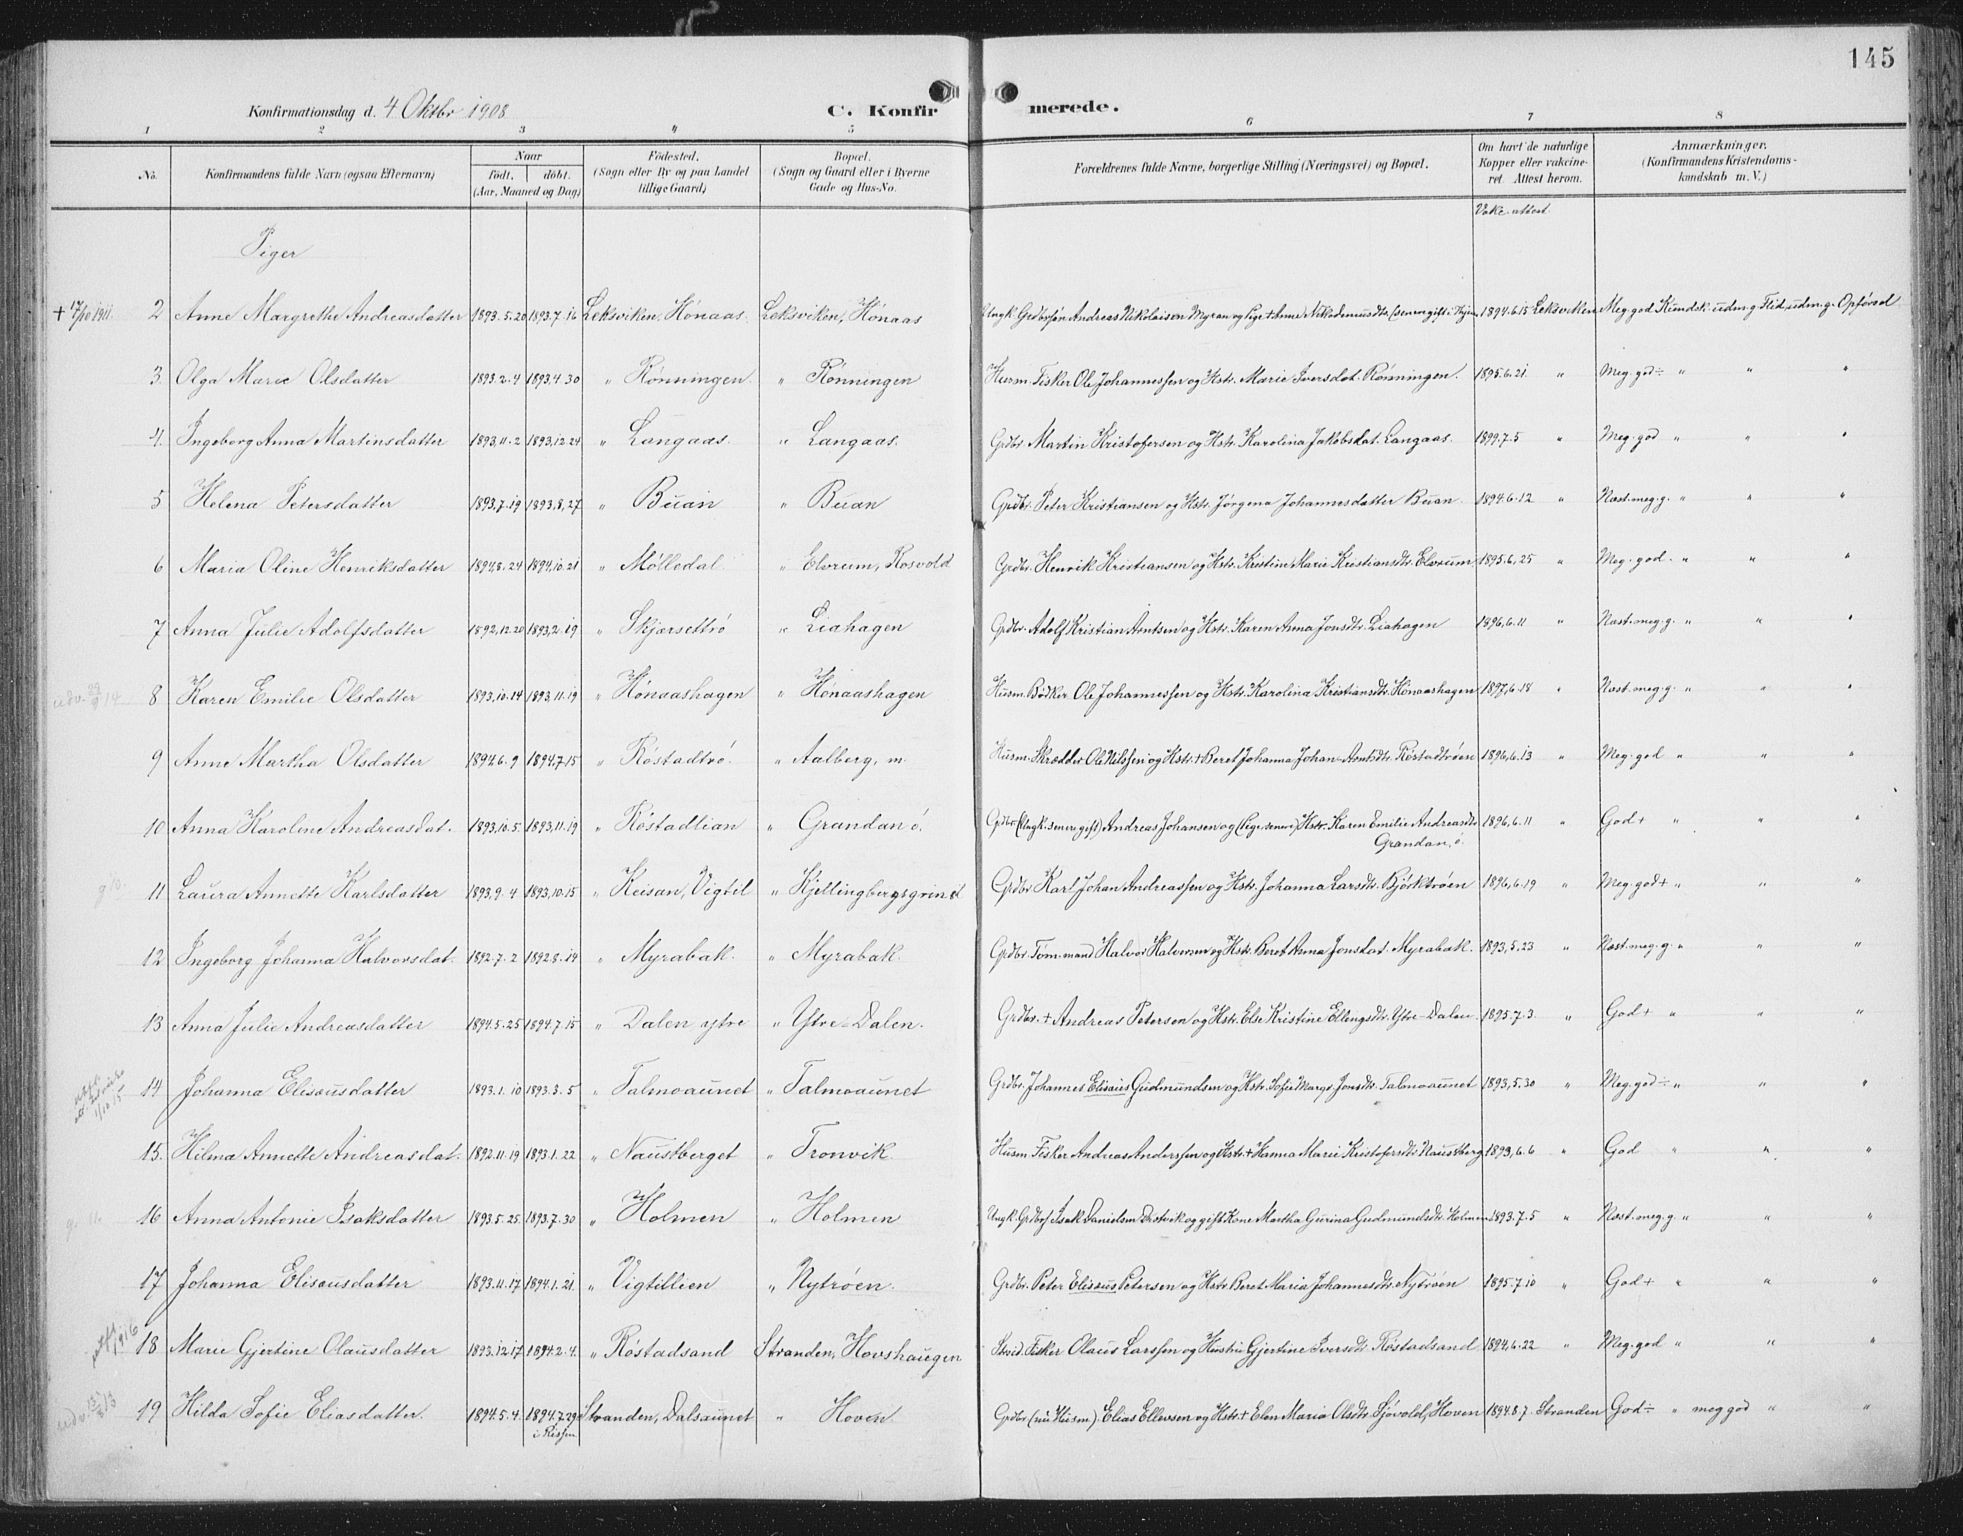 145
Konfirmationsdag d. 4 Oktbr 1908 C. Konfirmerede.
1 2 3 4 5 6 7 8
No. Konfirmandens fulde Navn (ogsaa Efternavn) Naar födt. döbt. (Aar, Maaned og Dag) Födested. (Sogn eller By og paa Landet tillige Gaard) Bopæl. (Sogn og Gaard eller i Byerne Gade og Hus-No. Forældrenes fulde Navne, borgerlige Stilling (Næringsvei) og Bopæl. Om havt de naturlige Kopper eller vakcineret. Attest herom. Anmærkninger. (Konfirmandens Kristendomskundskab m. V.)
Vakc. attest.
Piger
+ 17/10 1911. 2 Anne Margrethe Andreasdatter 1893.5.20 1893.7.16 Leksviken, Hönaas Leksviken, Hönaas Ungk. Grdbrsön Andreas Nikolaisen Myran og Pige + Anne Nikodemusdtr 1894.6.15 Leksviken Meg. god Kundsk. udm. g. Flid, udm. g. Opförsel
3. Olga Marie Olsdatter 1893.2.4 1893.4.30 " Rönningen " Rönningen Husm. Fisker Ole Johannessen og Hstr. Marie Iversdat. Rönningen. 1895.6.21. " Meg. god ÷ " " "
4. Ingeborg Anna Martinsdatter 1893.11.2 1893.12.24 " Langaas. " Langaas. Grdbr. Martin Kristofersen og Hstr. Karolina Jakobsdat. Langaas. 1899.7.5 " Meg. god " " "
5 Helena Petersdatter 1893.7.19 1893.8.27 " Buan " Buan Grdbr. Peter Kristiansen og Hstr. Jörgena Johannesdatter Buan 1894.6.12 " Næst. meg. g. " " "
6 Maria Oline Henriksdatter 1894.8.24 1894.10.21 " Mölledal " Elvrum, Rosvold Grdbr. Henrik Kristiansen og Hstr. Kristine Marie Kristiansdtr. Elvrum 1895.6.25 " Meg. god. " " "
7 Anna Julie Adolfsdatter 1892.12.20 1893.2.19 " Skjærsettrö " Liahagen Grdbr. Adolf Kristian Arntsen og Hstr. Karen Anna Jonsdtr. Liahagen 1896.6.11 " Næst. meg. g. " " "
8 Karen Emilie Olsdatter 1893.10.14 1893.11.19 " Hönaashagen " Hönaashagen Husm. Bödker Ole Johannessen og Hstr. Karolina Kristiansdtr. Hönaashagen 1897.6.18 " Næst. meg. g. " " "
9 Anne Martha Olsdatter 1894.6.9 1894.7.15 " Röstadtrö. " Aalberg, m. Husm. Skrædder Ole Nilssen og Hstr. + Beret Johanna Johan-Arntsdtr. Röstadtröen 1896.6.13 " Meg. god " " "
10 Anna Karoline Andreasdat. 1893.10.5 1893.11.19 " Röstadlian " Grandan ö. Grdbr. (Ungk. senere gift) Andreas Johansen og (Pige, senere) Hstr. Karen Emilie Andreasdtr. 1896.6.11 " God + " " "
Grandan, ö.
11 Laura Annette Karlsdatter 1893.9.4 1893.10.15 " Keisan, Vigtil " Kjellingbergsgrind Grdbr. Karl Johan Andreassen og Hstr. Johanna Larsdtr. Björktröen 1896.6.19 " Meg. god + " " "
12 Ingeborg Johanna Halvorsdat. 1892.7.2 1892.8.14 " Myrabak. " Myrabak. Grdbr. Töm.mand Halvor Halvorsen og Hstr. Beret Anna Jonsdat. Myrabak. 1893.5.23 " Næst. meg. g. " " "
13 Anna Julie Andreasdatter 1894.5.25 1894.7.15 " Dalen ytre " Ytre-Dalen. Grdbr. + Andreas Petersen og Hstr. Else Kristine Ellingsdtr. Ytre-Dalen 1895.7.3 " God + " " "
14 Johanna Elisæusdatter 1893.1.10 1893.3.5 " Talmoaunet " Talmoaunet Grdbr. Johannes Elisæus Gudmundsen og Hstr. Sofie Margr. Jonsdtr. Talmoaunet 1893.5.30 " Meg. god ÷ " " "
15. Hilma Annette Andreasdat. 1892.11.19 1893.1.22 " Naustberget " Tronvik Husm Fisker Andreas Anderssen og Hstr + Hanna Marie Kristofersdtr Naustberg 1893.6.6 " God " " "
16 Anna Antonie Isaksdatter 1893.5.25. 1893.7.30 " Holmen " Holmen Ungk. Grdbrs. Isak Danielsen Drotvik og gift Kone Martha Gurina Gudmundsdtr. Holmen 1893.7.5 " Næst. meg. g. " " "
17 Johanna Elisæusdatter 1893.11.17 1894.1.21. " Vigtillien " Nytröen. Grdbr. Peter Elisæus Petersen og Hstr. Beret Maria Johannesdtr. Nytröen 1895.7.10 " God + " " "
18 Marie Gjertine Olausdatter 1893.12.17 1894.2.4. " Röstadsand Stranden, Hovshaugen Strid. Fisker Olaus Larssen og Hustru Gjertine Iversdtr. Röstadsand 1894.6.22 " Meg. god " " "
19 Hilda Sofie Eliasdatter. 1894.5.4. 1894.7.29 i Rissen Stranden, Dalsaunet " Hoven Grdbr (nu Husm) Elias Ellevsen og Hstr + Elen Maria Olsdtr. Sjövold, Hoven 1894.8.7. Stranden God ÷ " meg god " "